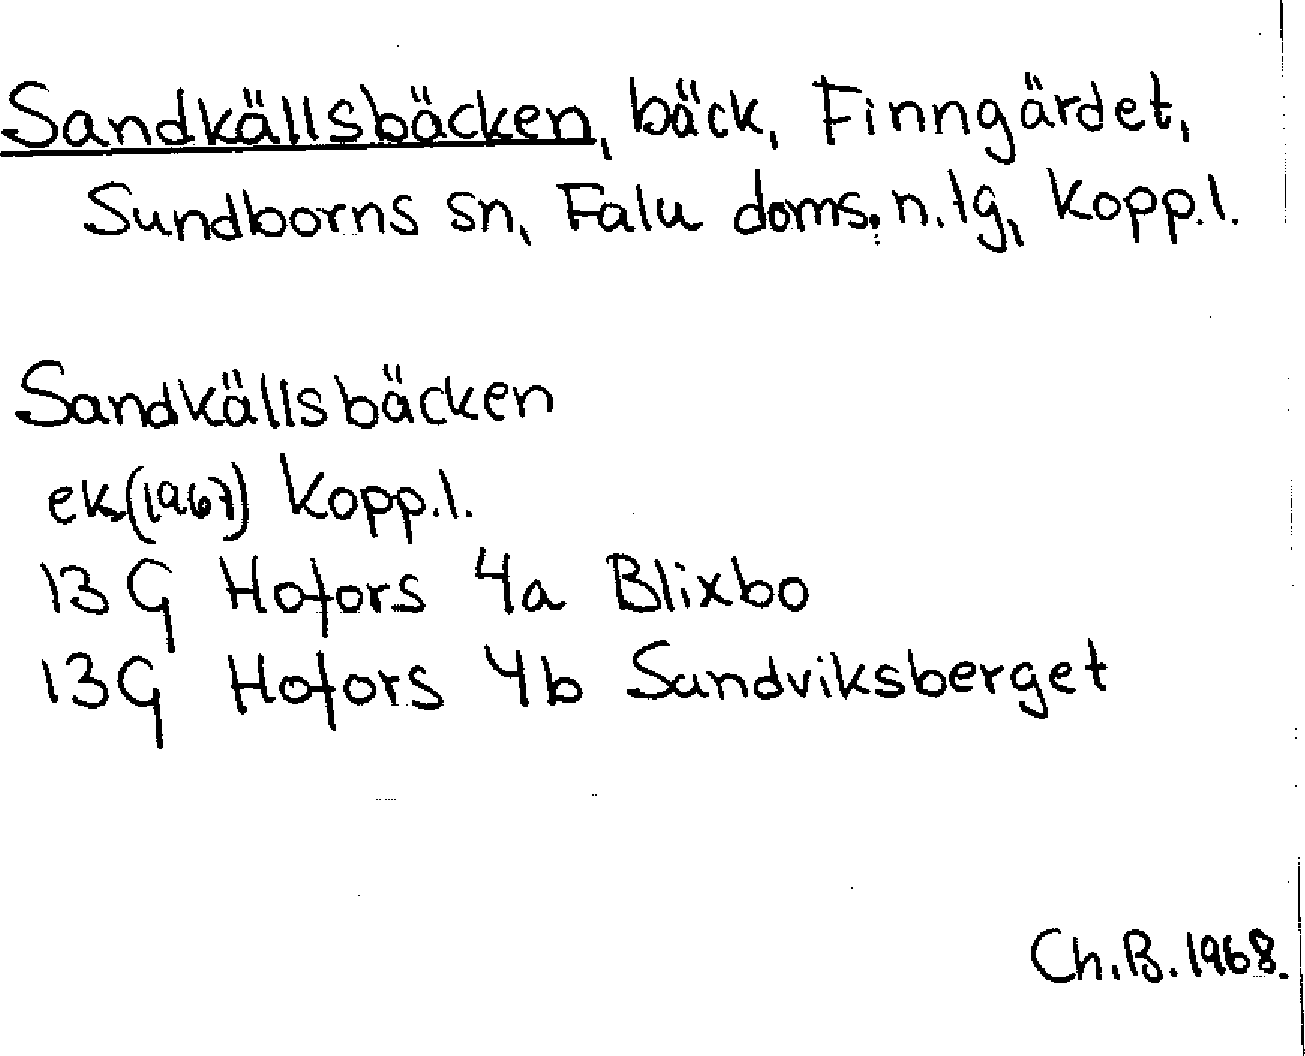 Sandkällsbäcken, bäck, Finngärdet,
Sundborns sn, Falu doms. n. tg, Kopp.l.
Sandkällsbäcken
ek(1967) Kopp.l.
13G Hofors 4a Blixbo
13G Hofors 4b Sandviksberget
Ch.B. 1968.